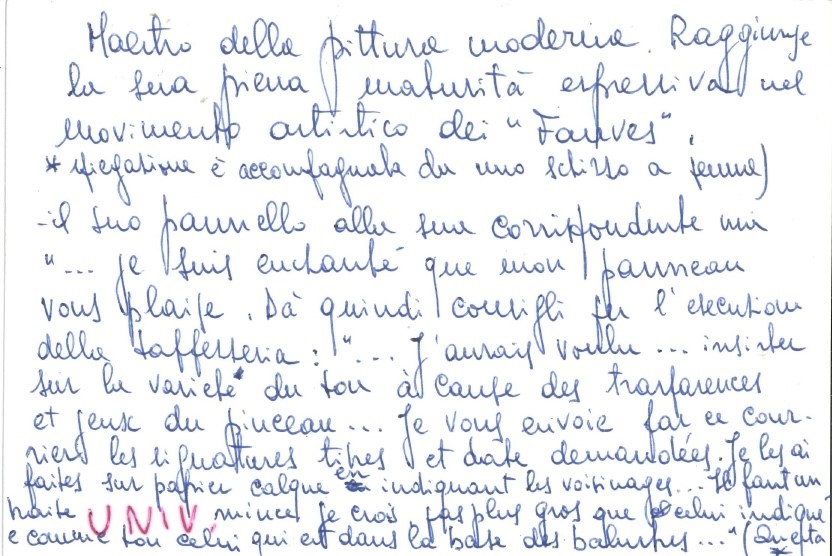 Maestro della pittura moderna. Raggiunge
la sua piena maturità espressiva nel
movimento artistico dei "Fauves".
* spiegazione è accompagnata da uno schizzo a penna)
- il suo pannello alla sua corrispondente
"... je suis enchanté que mon panneau
vous plaise. Dà quindi consigli su l'esecuzione
della tappezzeria: "... J'aurais voulu... insister
sur la varieté du ton à cause des trasparences
et jeux du pinceau... Je vous envoie par ce cour-
riers les signatures titres et date demandées. Je les ai
faites sur papier calque en indiquant les voisinages... Il faut un
mince je crois pas plus gros que celui indiqué
e comme ton celui qui est dans la base des balustres..." (Questa
UNIV